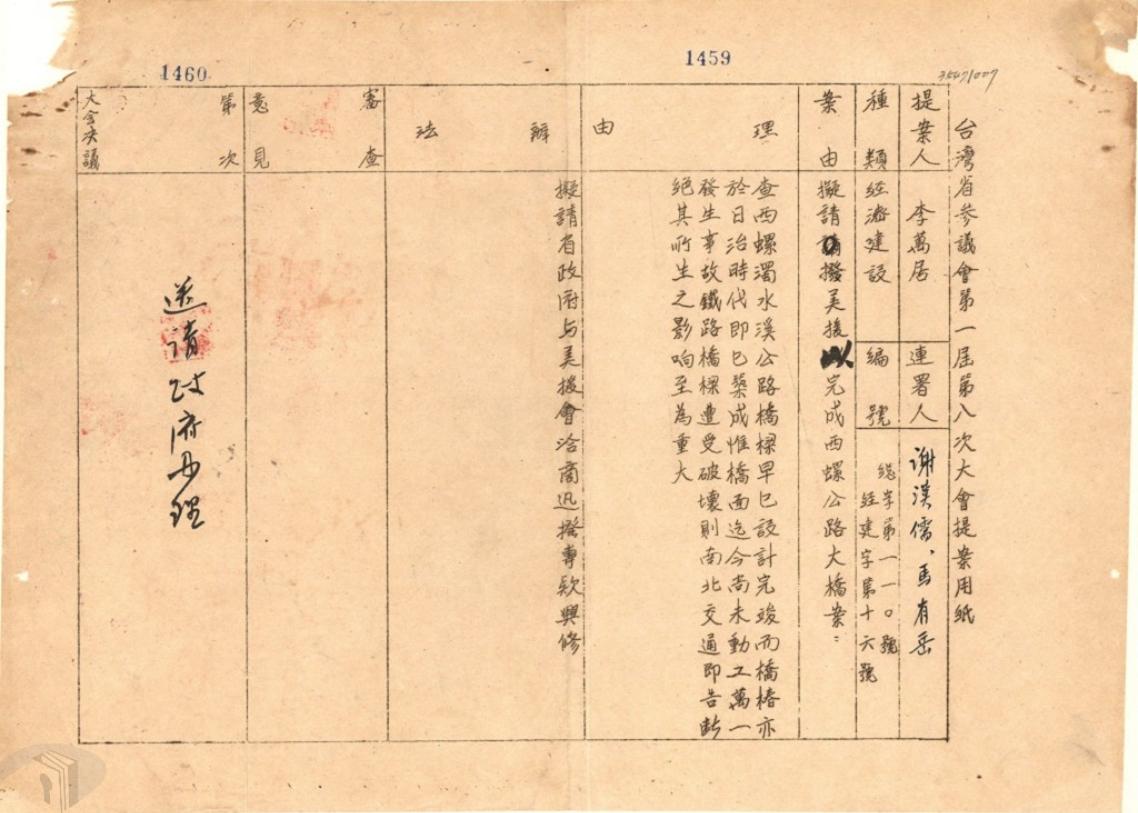 1459
1460
台灣省參議會第一屆第八次大會提案用紙
提案人
李萬居
連署人
謝漢儒、馬有岳
種類
經濟建設
編號
總字第一一〇號
經建字第十六號
案由
擬請撥美援以完成西螺公路大橋案:
理由
查西螺濁水溪公路橋樑早已設計完竣而橋樁亦
於日治時代即已築成惟橋面迄今尚未動工萬一
發生事故鐵路橋樑遭受破壞則南北交通即告斷
絕其所生之影响至為重大
辦法
擬請省政府与美援會洽商迅撥專款興修
審查意見
第次大會決議
送請政府办理